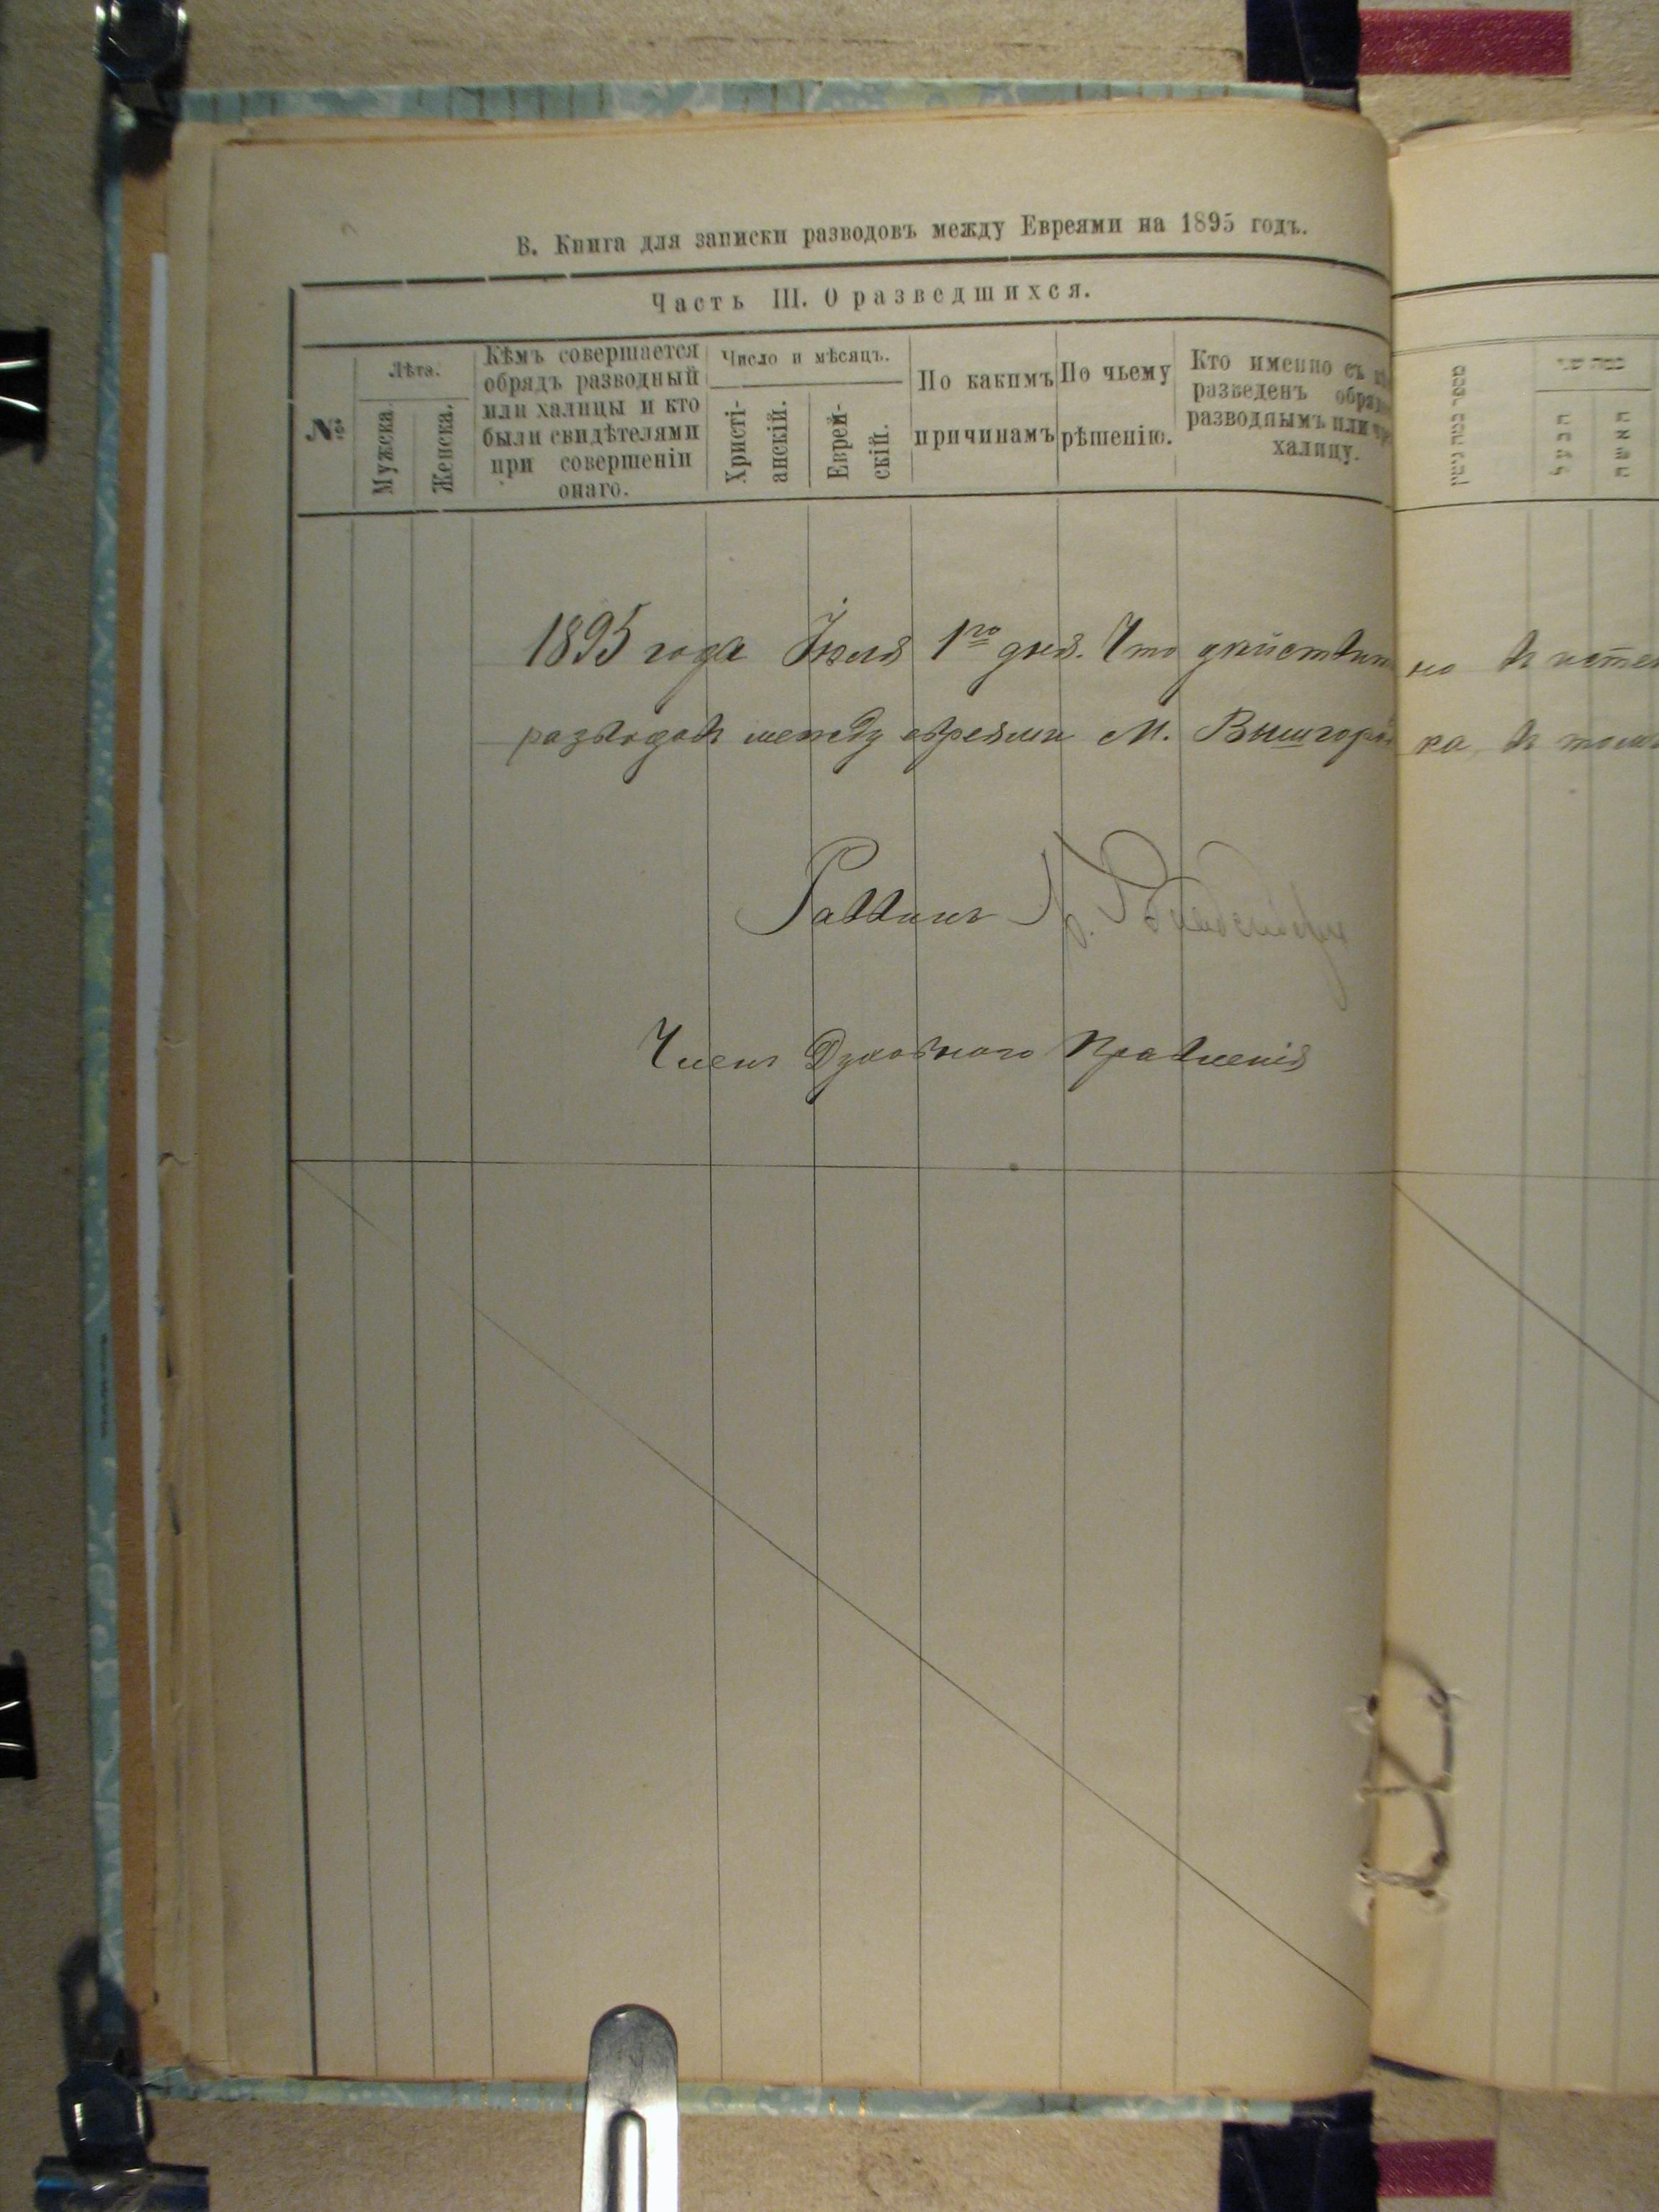 В. Книга для записки разводовъ между Евреями на 1895 годъ.
Часть III. О разведшихся.
№
Лѣта.
Мужска.
Женска.
Кѣмъ совершается
обрядъ разводный
или халицы и кто
были свидѣтелями
при совершеніи
онаго.
Число и мѣсяцъ.
Христі-
анскій.
Еврей-
скій.
По какимъ
причинамъ
По чьему
рѣшенію.
Кто именно съ
разведенъ
разводнымъ или
халицу.
הבעל
האשה
1895 года Іюля 1го дня. Что действительно в истек
разводов между евреями М. Вышгородка в том
Раввин
Член Духовного Правленія